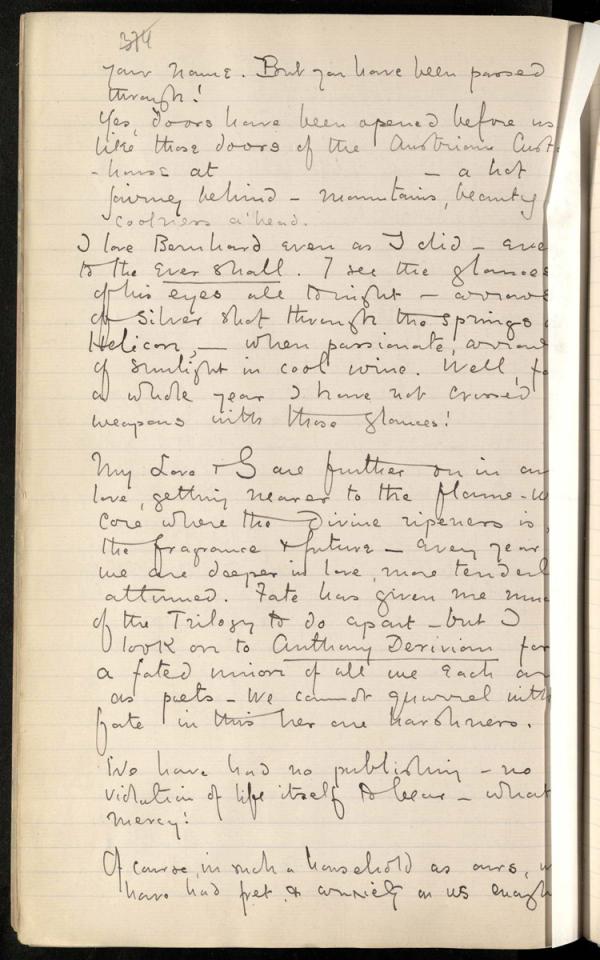 374
your name. But you have been passed
through!
Yes, doors have been opened before us
like those doors of the Austrian Cust
-house at — a hot
journey behind – mountains, beauty
coolness a'head.
I love Bernhard even as I did – eve
to the Ever shall. I see the glances
of his eyes all tonight – arrows
of silver shot through the springs o
Helicon, — when passionate, arrow
of sunlight in cool wine. Well, fo
a whole year I have not crossed
weapons with those glances!
My Love & I are further on in our
love, getting nearer to the flame-
core where the Divine ripeness is,
the fragrance & future – every year
we are deeper in love, more tenderl
attuned. Fate has given me muc
of the Trilogy to do apart – but I
look on to Anthony Derivian for
a fated union of all we each are
as poets – We cannot quarrel with
fate in this her one harshness.
We have had no publishing – no
violation of life itself to bear – what
mercy!
Of course, in such a household as ours, w
have had fret & anxiety on us enough